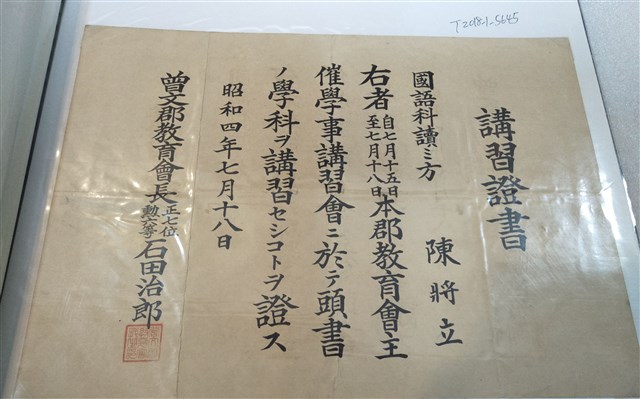 T2018-1-5645
講習證書
陳將立
國語科讀ミ方
右者自七月十五日至七月十八日本郡教育會主
催學事講習會ニ於テ頭書
ノ學科ヲ講習セシコトヲ證ス
昭和四年七月十八日
曾文郡教育會長正七位勲六等石田治郎